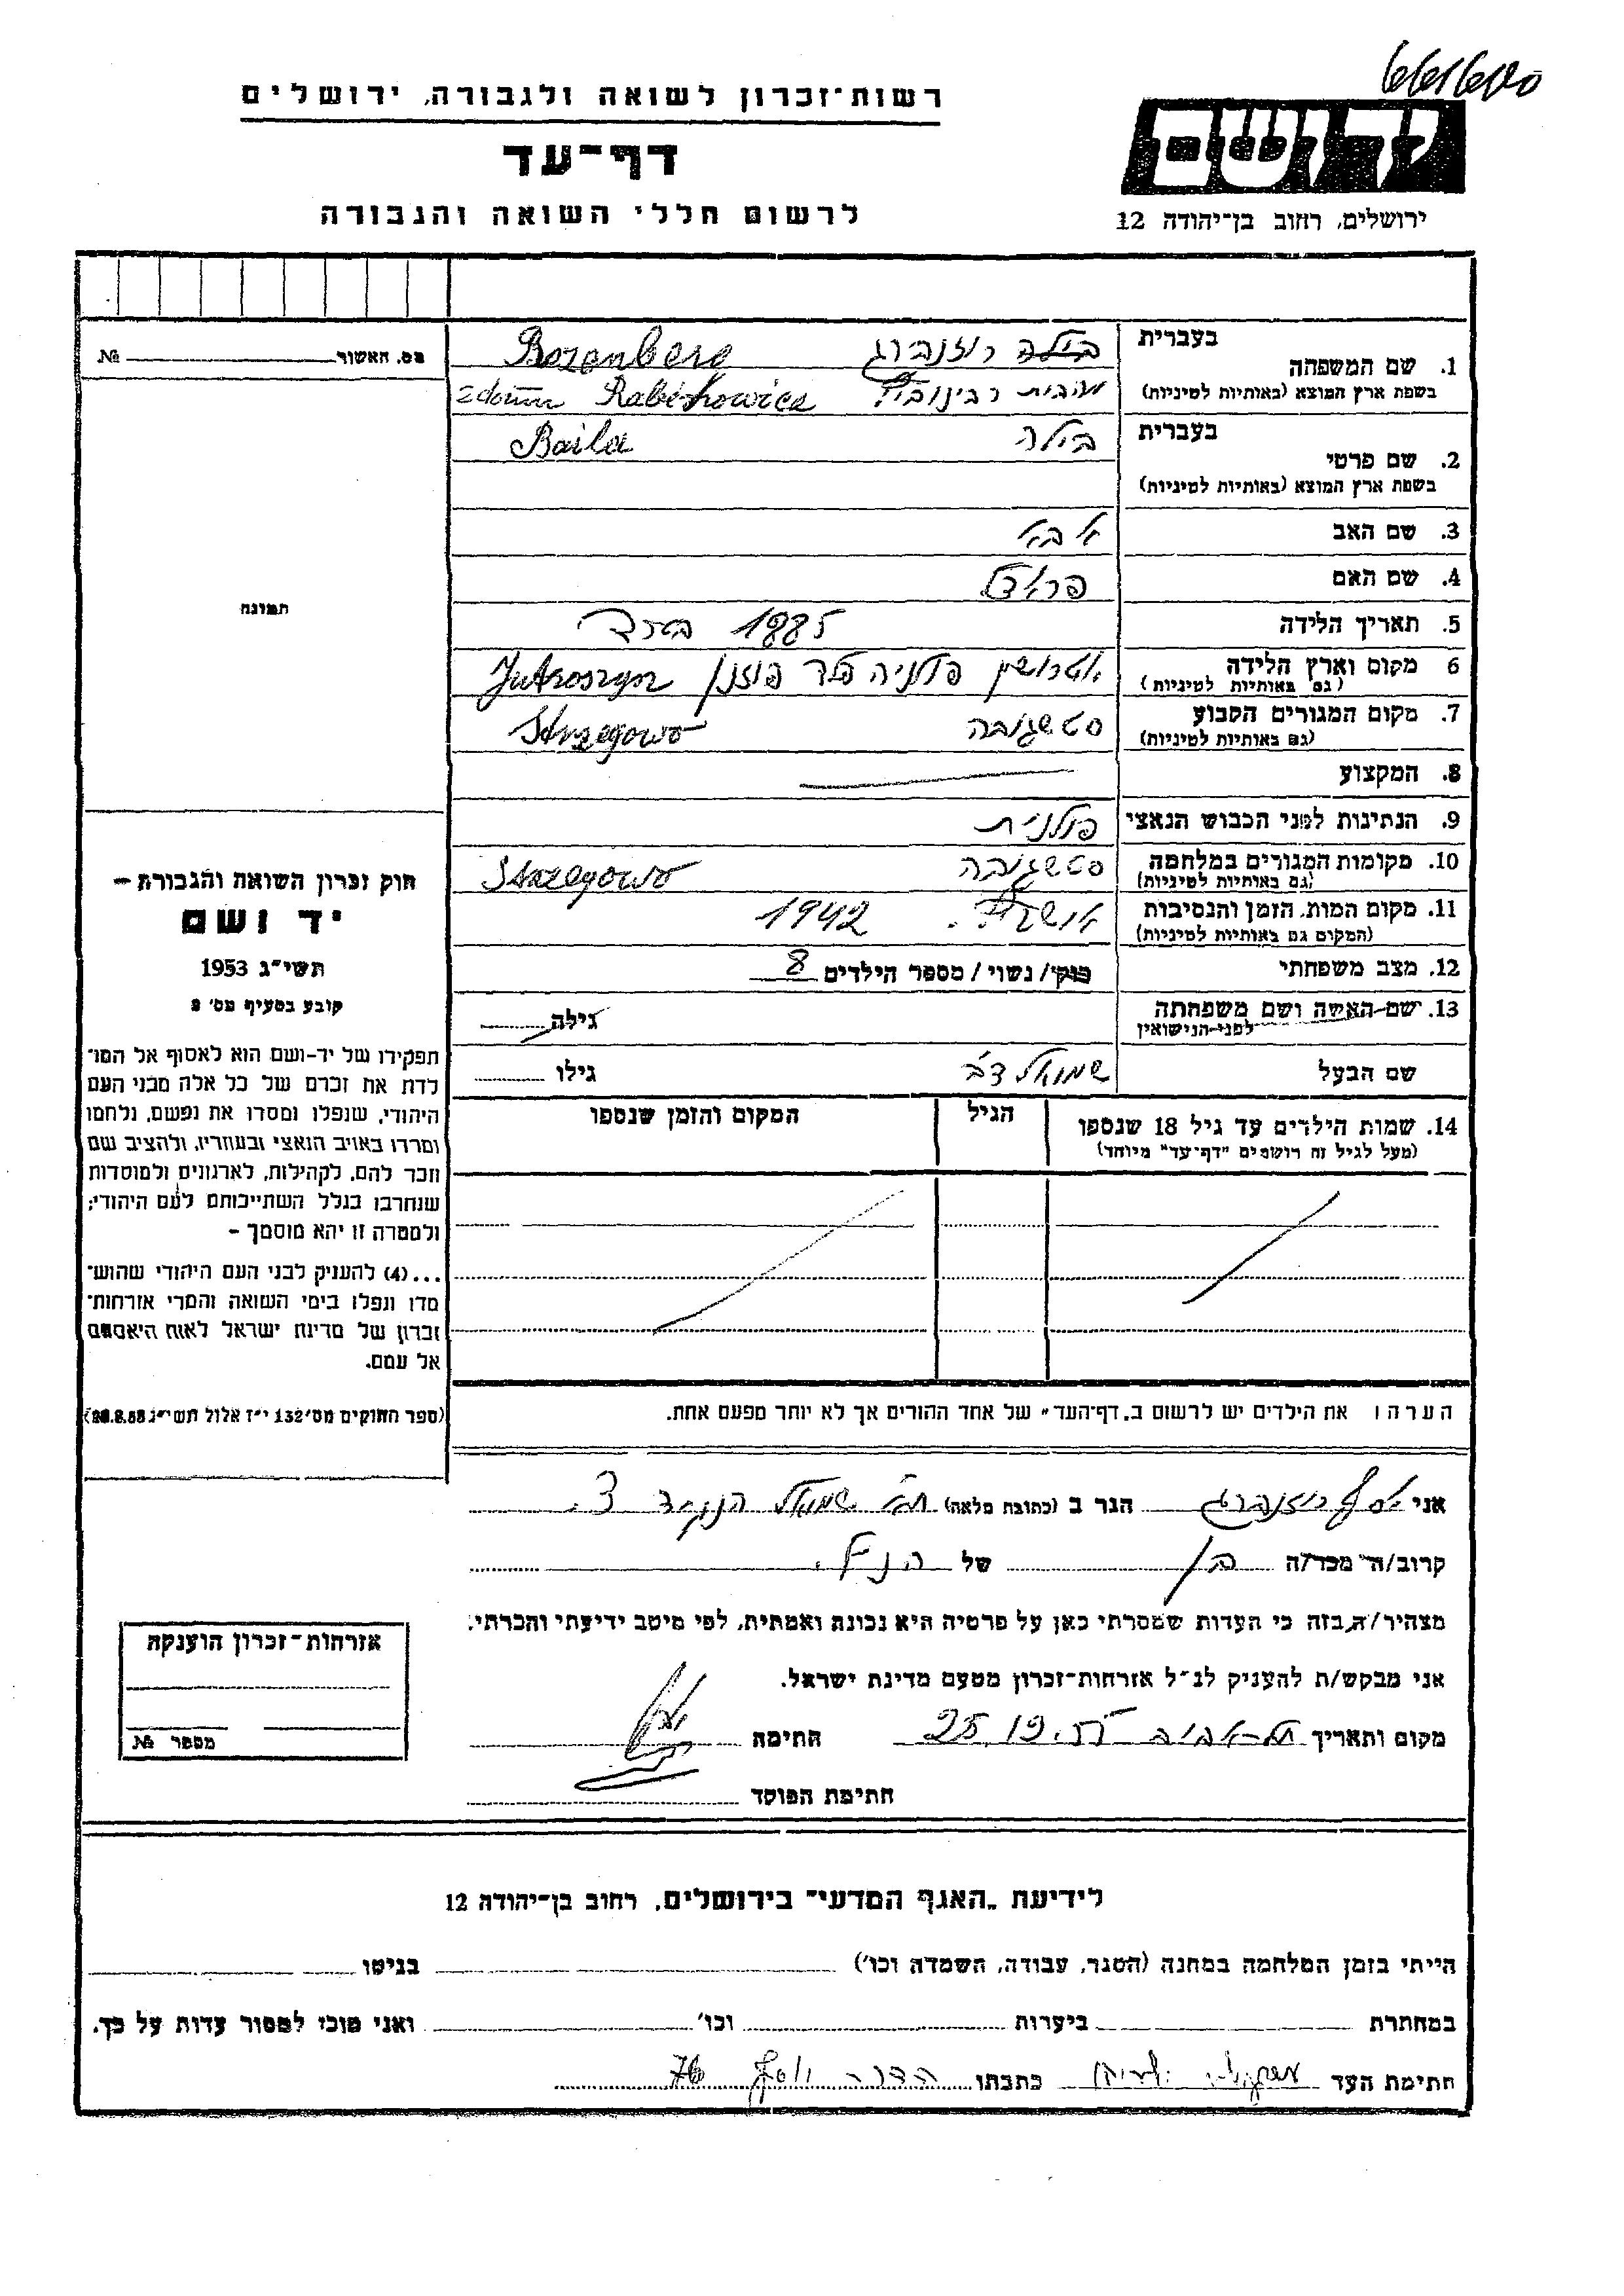 רשות־זכרון לשואה ולגבורה, ירושלים
דף־עד
לרשום חללי השואה והגבורה
יד ושם
ירושלים, רחוב בן־יהודה 12
בעברית
1. שם המשפחה
בשפת ארץ המוצא (באותיות לטיניות)
בילה רוזנברג Rozenberg
מבית רבינוביץ z domu Rabinowicz
בעברית
2. שם פרטי
בשפת ארץ המוצא (באותיות לטיניות)
בילה Baila
3. שם האב אבא
4. שם האם
5. תאריך הלידה 1885
6 מקום וארץ הלידה
(גם באותיות לטיניות)
פולניה פלך Jutroszyn
7. מקום המגורים הקבוע
(גם באותיות לטיניות)
סטשגובה Strzegowo
8. המקצוע
9. הנתינות לפני הכבוש הנאצי פולנית
10. מקומות המגורים במלחמה
(גם באותיות לטיניות)
סטשגובה Strzegowo
11. מקום המות, הזמן והנסיבות
(המקום גם באותיות לטיניות)
1942
12. מצב משפחתי רוק/נשוי/מספר הילדים 8
13. שם האשה ושם משפחתה
לפני הנישואין
גילה
שם הבעל שמואל דב גילו
14. שמות הילדים עד גיל 18 שנספו הגיל המקום והזמן שנספו
(מעל לגיל זה רושמים "דף־עד" מיוחד)
הערה: את הילדים יש לרשום ב„דף־העד" של אחד ההורים אך לא יותר מפעם אחת.
מס. האשור №
תמונה
חוק זכרון השואה והגבורה –
יד ושם
תשי"ג 1953
קובע בסעיף מס' 2
תפקידו של יד־ושם הוא לאסוף אל המו־
לדת את זכרם של כל אלה מבני העם
היהודי, שנפלו ומסרו את נפשם, נלחמו
ומרדו באויב הנאצי ובעוזריו, ולהציב שם
וזכר להם, לקהילות, לארגונים ולמוסדות
שנחרבו בגלל השתייכותם לעם היהודי;
ולמטרה זו יהא מוסמך –
...(4) להעניק לבני העם היהודי שהוש־
מדו ונפלו בימי השואה והמרי אזרחות־
זכרון של מדינת ישראל לאות היאספם
אל עמם.
(ספר החוקים מס' 132 י"ז אלול תשי"ג 28.8.53)
אני יוסף רוזנברג הגר ב (כתובת מלאה) ת"א שמואל הנגיד 3.
קרוב/ה מכר/ה בן של הנ"ל.
מצהיר/ה בזה כי העדות שמסרתי כאן על פרטיה היא נכונה ואמתית, לפי מיטב ידיעתי והכרתי.
אני מבקש/ת להעניק לנ"ל אזרחות־זכרון מטעם מדינת ישראל.
מקום ותאריך תל-אביב 25.12.55 חתימה
חתימת הפוקד
אזרחות־זכרון הוענקה
מספר №
לידיעת „האגף המדעי" בירושלים, רחוב בן־יהודה 12
הייתי בזמן המלחמה במחנה (הסגר, עבודה, השמדה וכו') בגיטו
במחתרת ביערות וכו' ואני מוכן למסור עדות על כך.
חתימת העד כתבתו יוסף 76